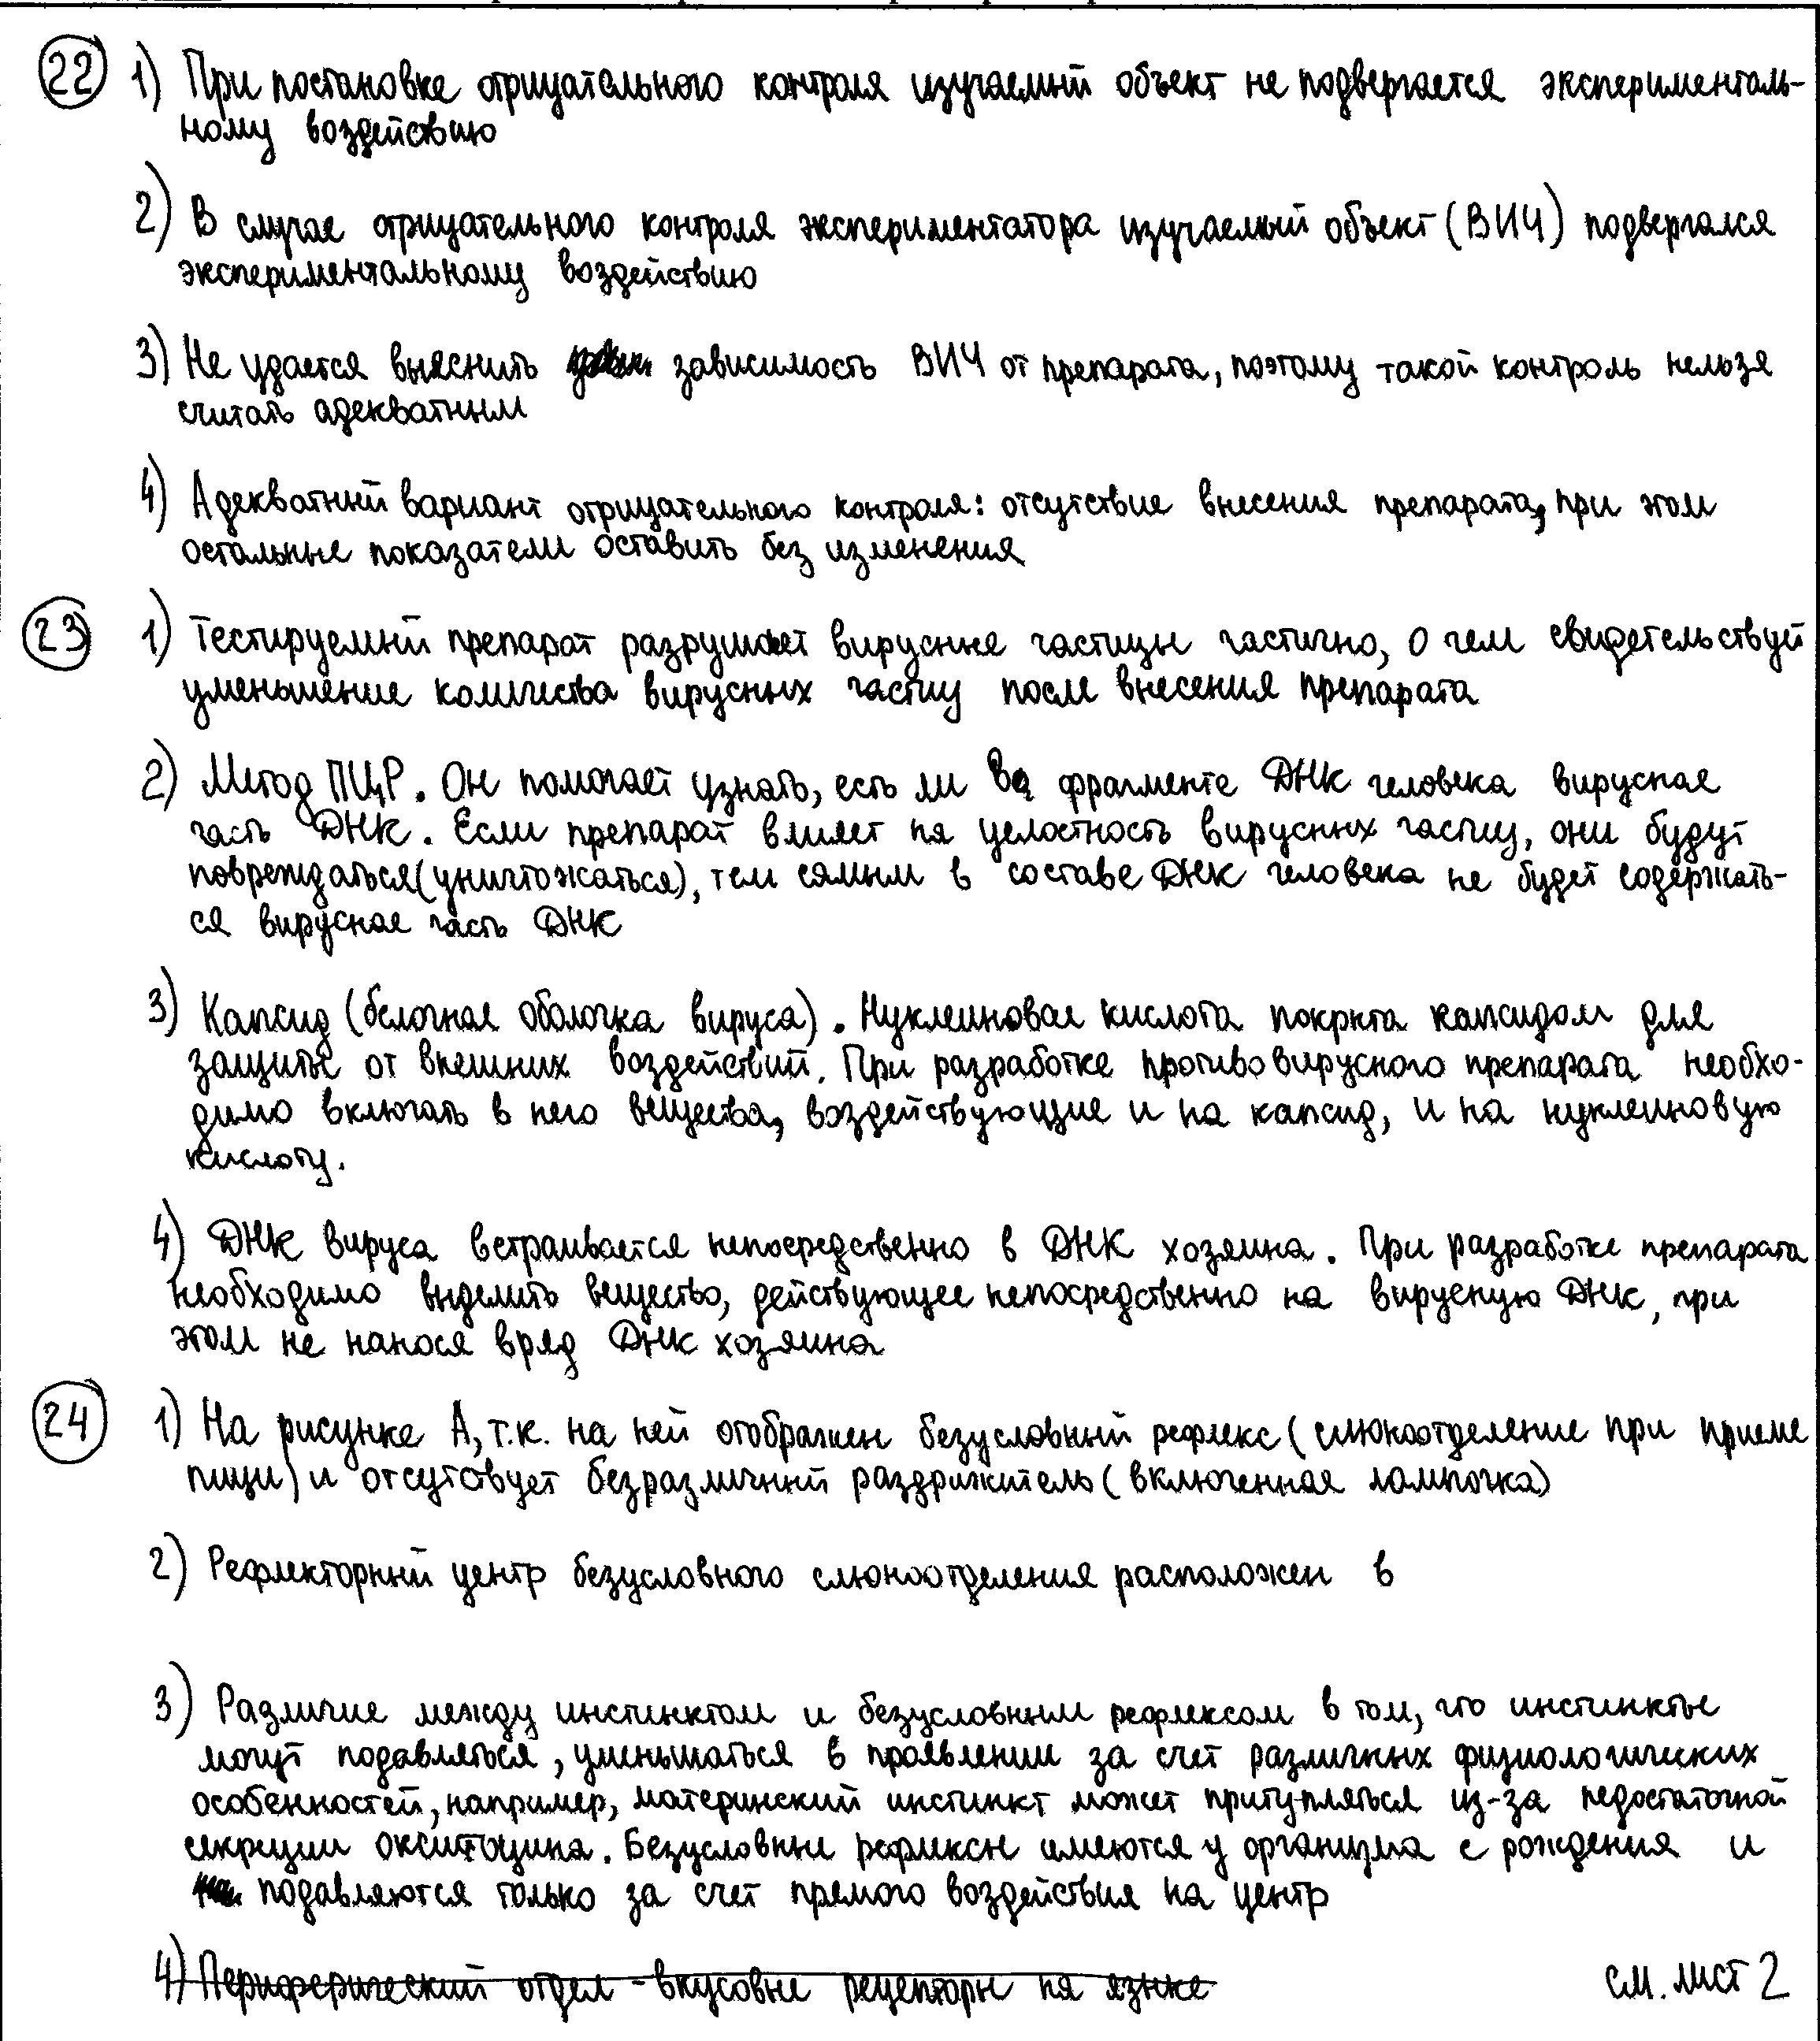 22 1) При постановке отрицательного контроля изучаемый объект не подвергается эксперименталь-
ному воздействию
2) В случае отрицательного контроля экспериментатора изучаемый объект (ВИЧ) подвергался
экспериментальному воздействию
3) Не удается выяснить зависимость ВИЧ от препарата, поэтому такой контроль нельзя
считать адекватным
4) Адекватный вариант отрицательного контроля: отсутствие внесения препарата, при этом
остальные показатели оставить без изменения
23 1) Тестируемый препарат разрушает вирусные частицы частично, о чем свидетельствует
уменьшение количества вирусных частиц после внесения препарата
2) Метод ПЦР. Он помогает узнать, есть ли во фрагменте ДНК человека вирусная
часть ДНК. Если препарат влияет на целостность вирусных частиц, они будут
повреждаться(уничтожаться), тем самым в составе ДНК человека не будет содержать-
ся вирусная часть ДНК
3) Капсид (белочная оболочка вируса). Нуклеиновая кислота покрыта капсидом для
защиты от внешних воздействий. При разработке противовирусного препарата необхо-
димо включать в него вещества, воздействующие и на капсид, и на нуклеиновую
кислоту.
4) ДНК вируса встраивается непосредственно в ДНК хозяина. При разработке препарата
необходимо выделить вещество, действующее непосредственно на вирусную ДНК, при
этом не нанося вред ДНК хозяина
24 1) На рисунке А, т.к. на ней отображен безусловный рефлекс (слюноотделение при приеме
пищи) и отсутсвует безразличный раздражитель (включенная лампочка)
2) Рефлекторный центр безусловного слюноотделения расположен в
3) Различие между инстинктом и безусловным рефлексом в том, что инстинкты
могут подавляться, уменьшаться в проявлении за счет различных физиологических
особенностей, например, материнский инстинкт может притупляться из-за недостаточной
секреции окситоцина. Безусловные рефлексы имеются у организма с рождения и
подавляются только за счет прямого воздействия на центр
4) Периферический отдел - вкусовые рецепторы на языке
см. лист 2